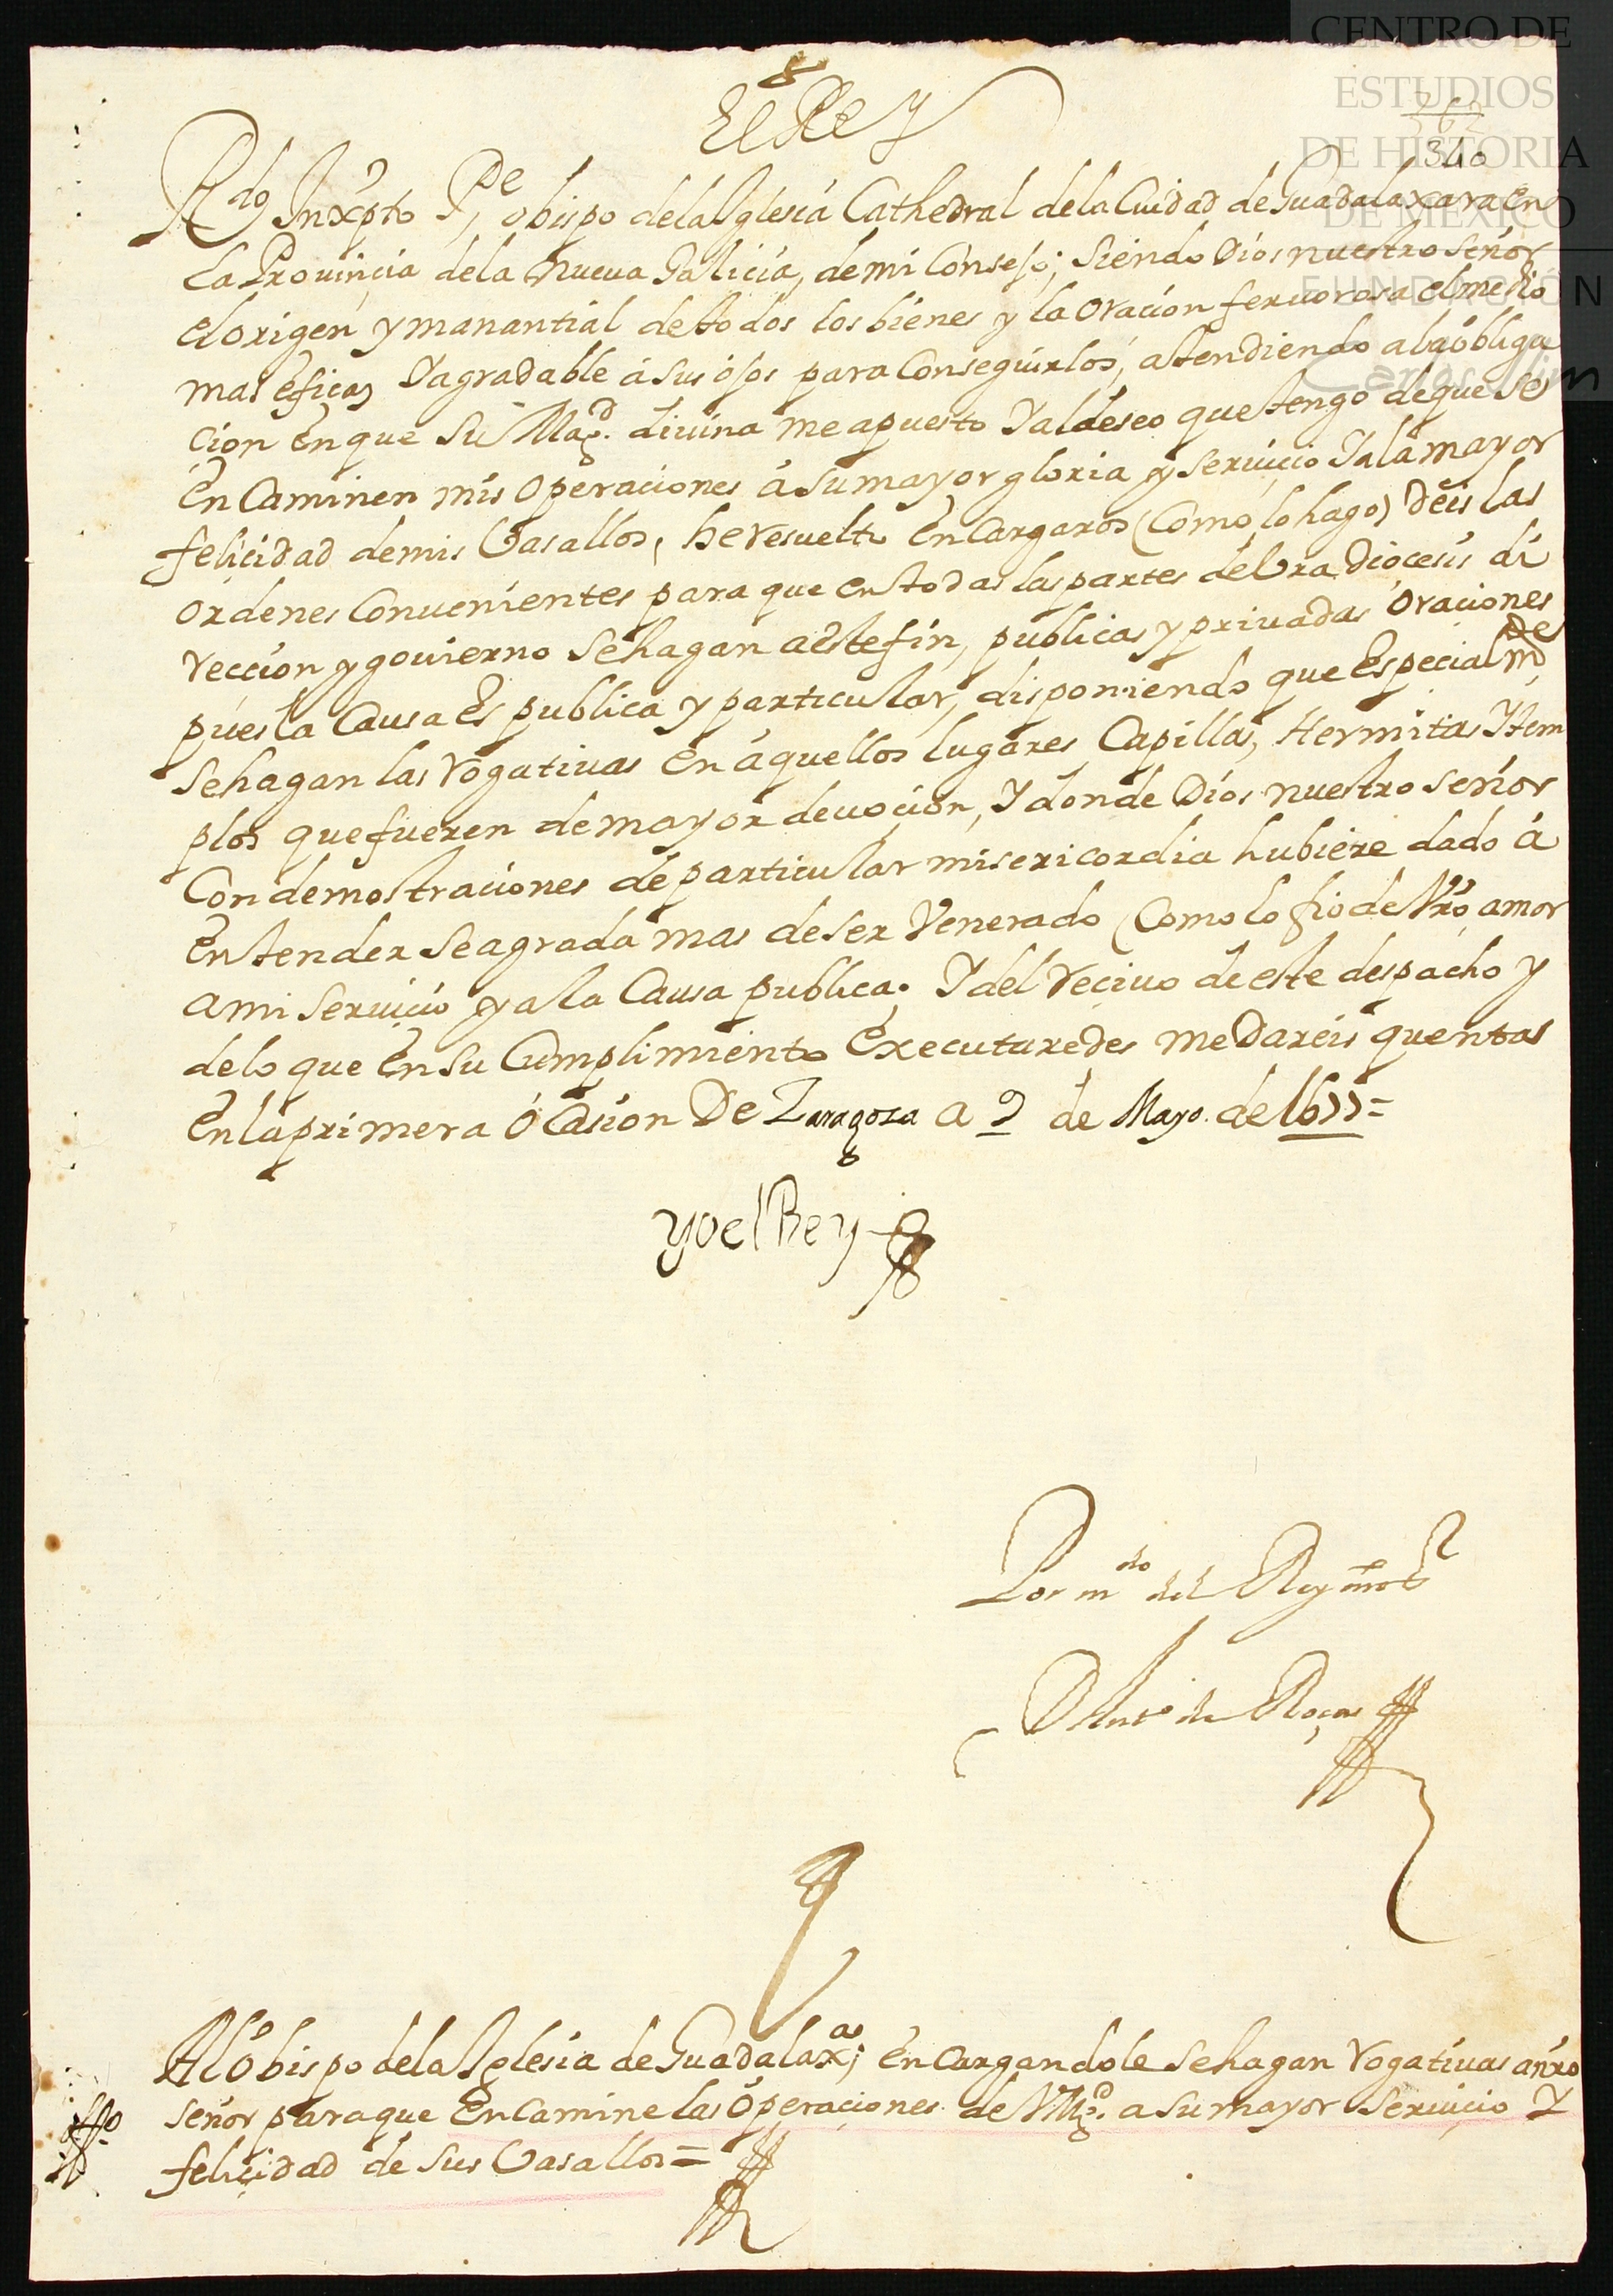 CENTRO DE
ESTUDIOS
DE HISTORIA
DE MÉXICO
FUNDACIÓN
Carlos Slim
El Rey
362
340
Rdo Inxpto Pe, obispo dela Iglesia Cathedral dela Ciudad de Guadalaxara en
la Prouinçia dela nueua Galicia, demi Consejo; Siendo Dios nuestro señor
el origen y manantial detodos los bienes y la oraçion feruorosa el medio
mas eficaz Yagradable á sus ojos para Conseguirlos, atendiendo ala obliga
cion en que Su Magd. diuina me apuesto Y aldeseo que tengo de que se
en Caminen mis operaciones á su mayor gloria y seruicio Y ala mayor
felicidad demis Vasallos, he resuelto en Cargaros (Como lo hago) deis las
ordenes Conuenientes para que en todas las partes de Vra Diocesis di
reccion y gouierno Se hagan a este fin, publicas y priuadas oraciones
pues la Causa Es publica y particular, disponiendo que Especialmde
Se hagan las rogatiuas en aquellos lugares Capillas, Hermitas Y tem
plos que fueren de mayor deuoçion, Y donde Dios nuestro señor
Con demostraciones de particular misericordia hubiere dado á
entender se agrada mas de ser Venerado (Como lo fio de Vro amor
ami seruicio y a la Causa publica. Y del reciuo de este despacho y
delo que en su Cumplimiento executaredes me dareis quentas
en la primera ócasion De Zaragoza a 9 de Mayo de 1677=
Yo el Rey
Por mdo del Rey nro Sr
D Anto de Roças
Al óbispo dela Iglesia de Guadalaxa; en Cargandole se hagan rogatiuas anro
señor para que encamine las óperaciones de VMgd. a su mayor seruicio Y
felicidad de sus Vasallos=